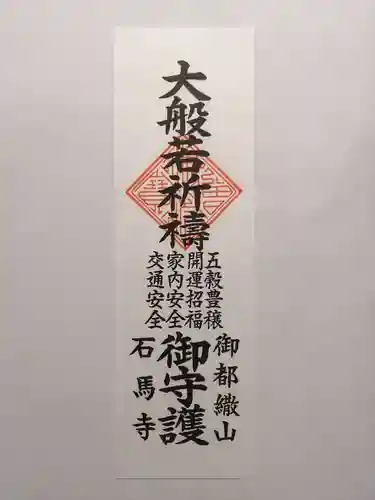 大般若祈禱
五穀豊穣
開運招福
家内安全
交通安全
御都繖山
御守護
石馬寺